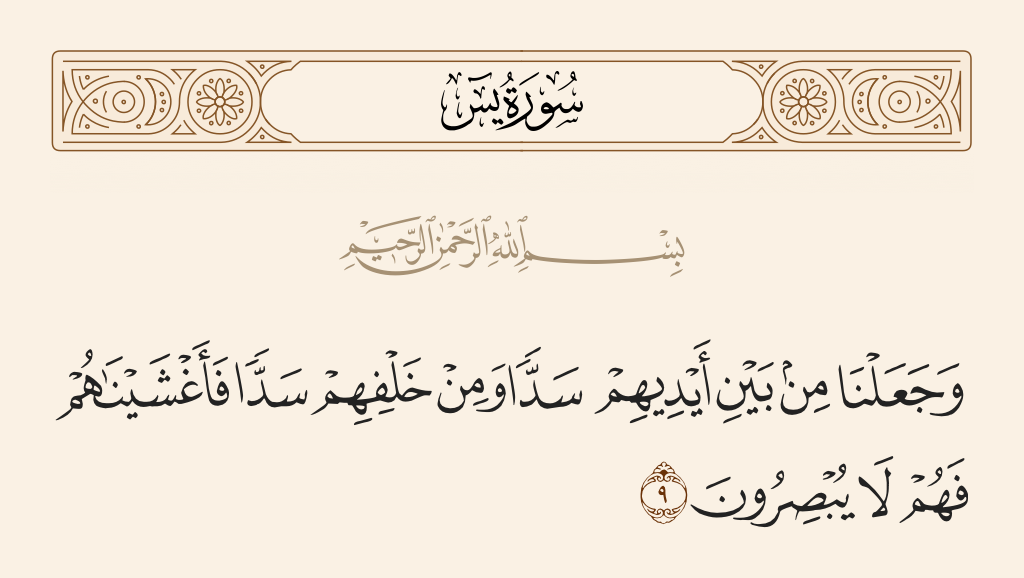 سُورَةُ يسٓ
بِسْمِ ٱللَّهِ ٱلرَّحْمَٰنِ ٱلرَّحِيمِ
وَجَعَلْنَا مِنۢ بَيْنِ أَيْدِيهِمْ سَدًّا وَمِنْ خَلْفِهِمْ سَدًّا فَأَغْشَيْنَٰهُمْ
فَهُمْ لَا يُبْصِرُونَ ٩